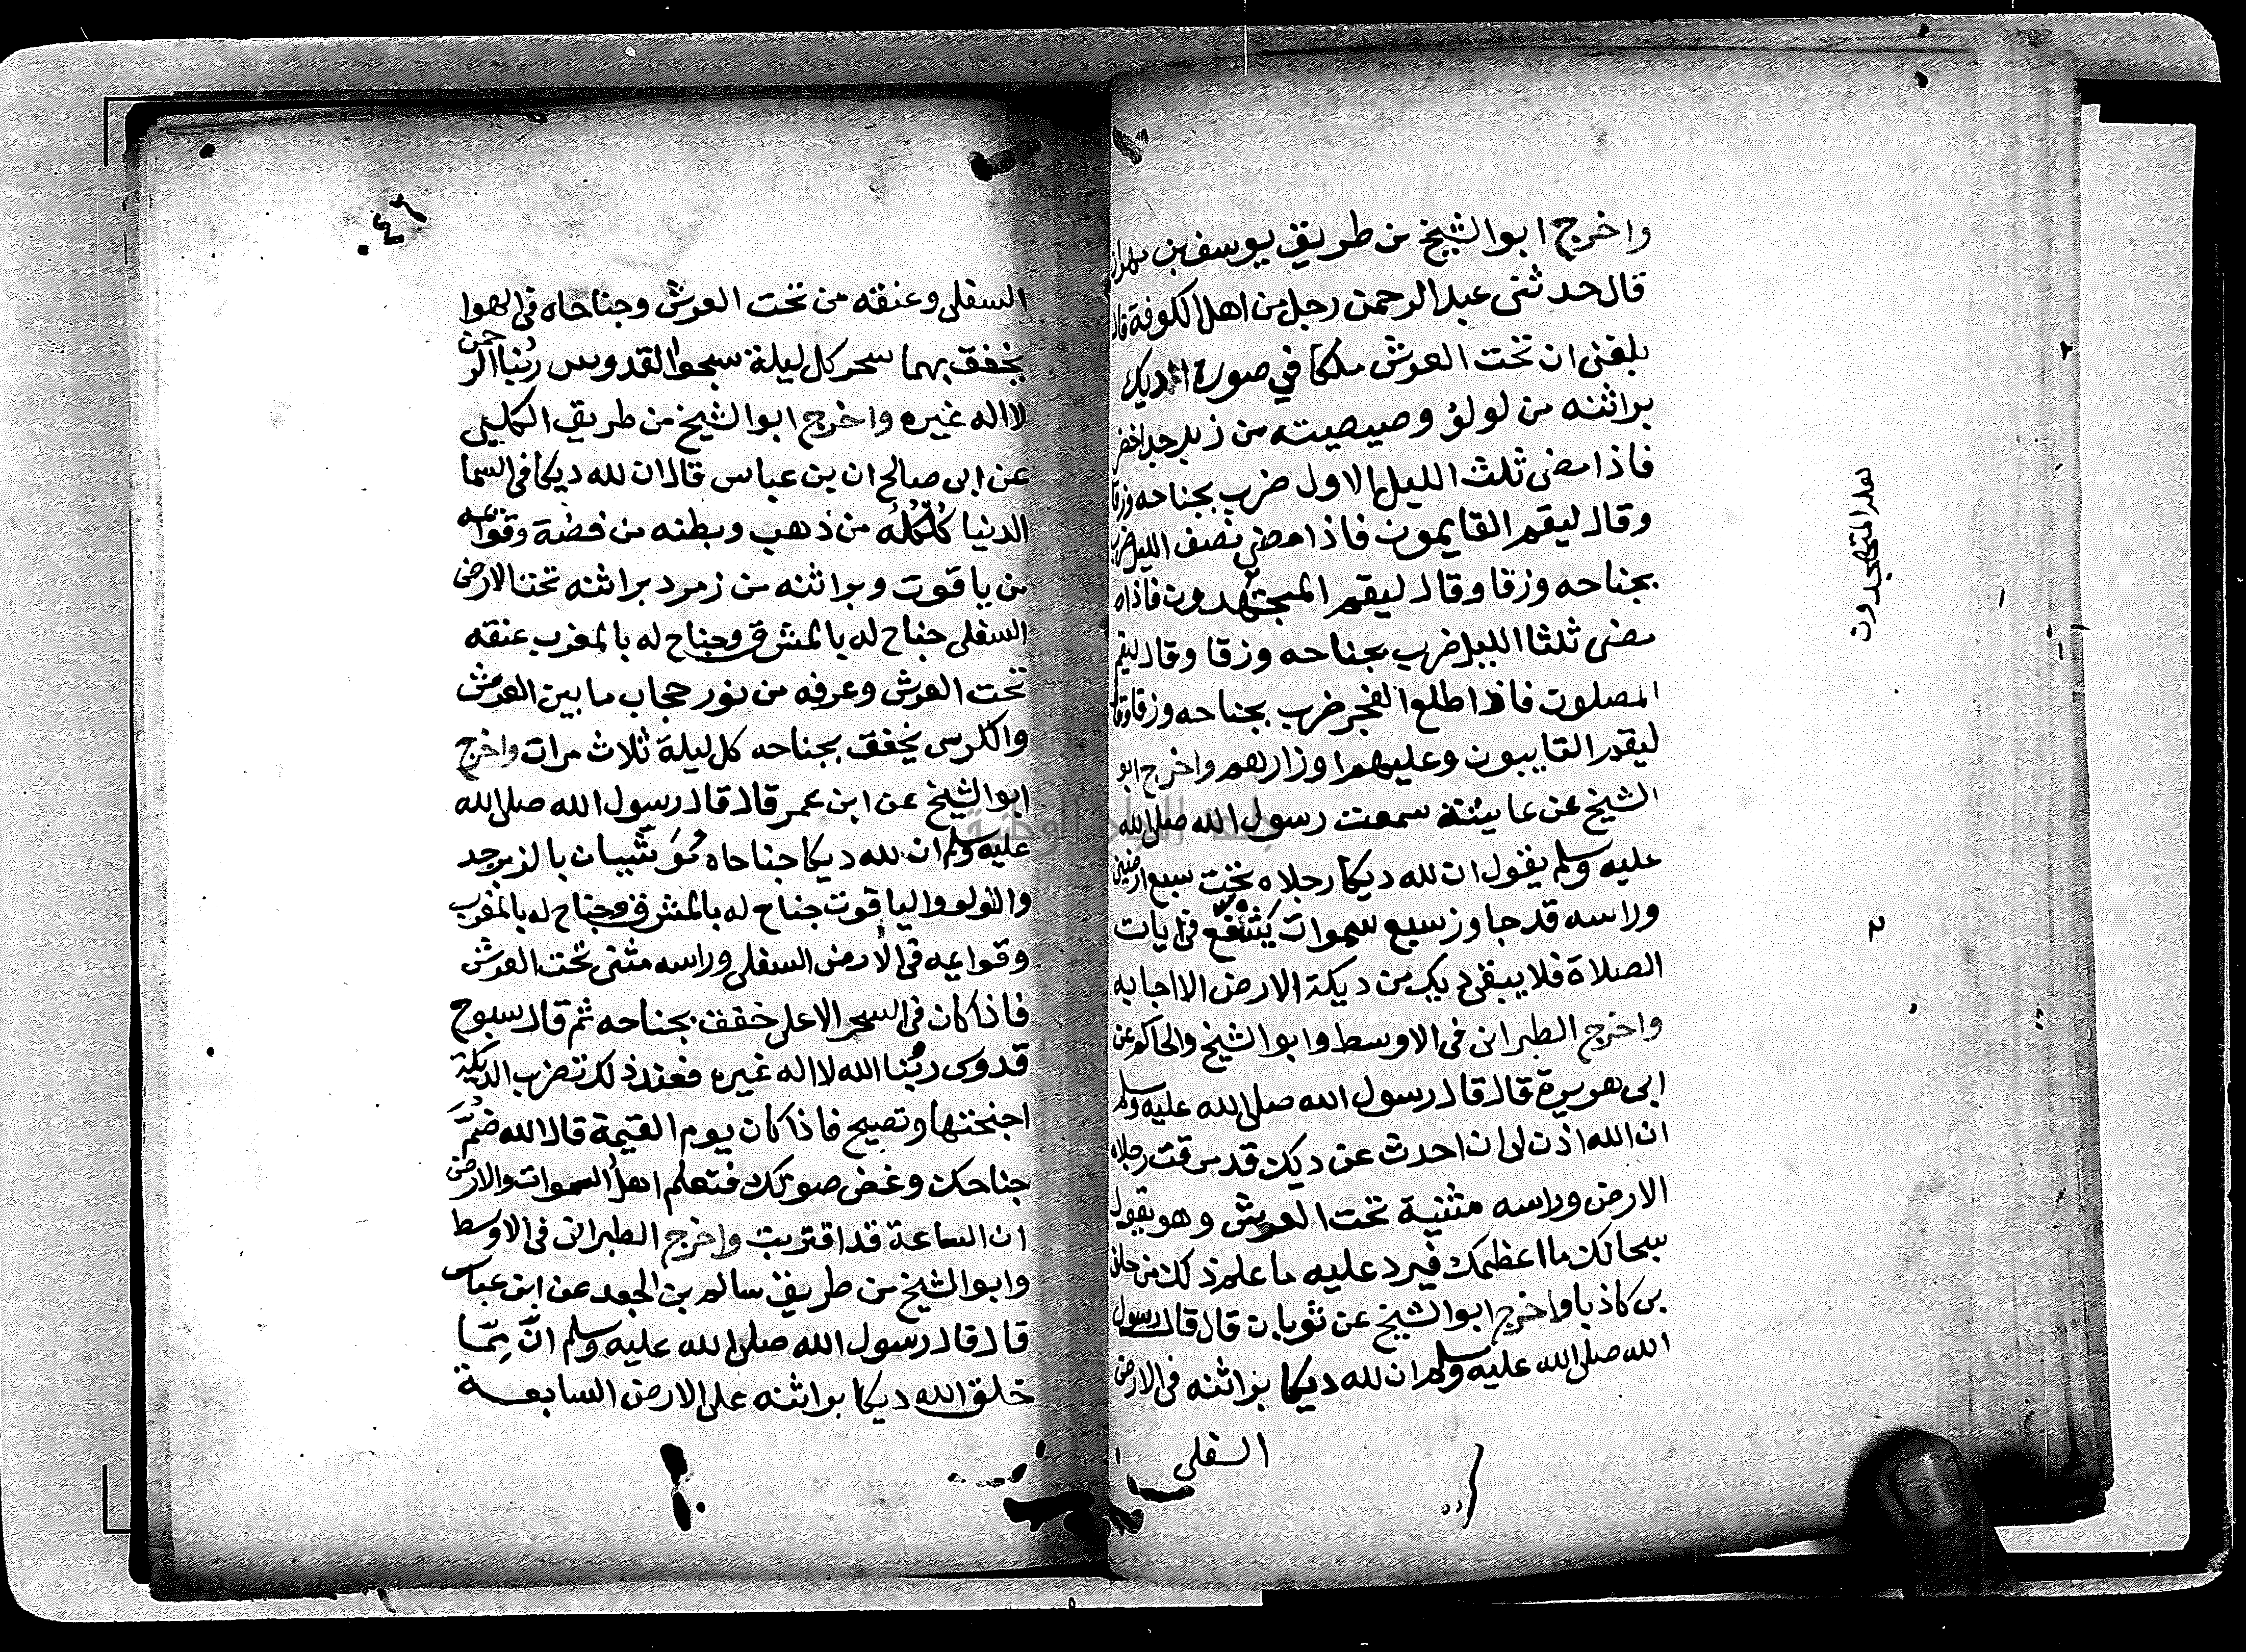 واخرج ابوالشيخ من طريق يوسف بن مهران
قال حدثنى عبدالرحمن رجل من اهل الكوفة قال
بلغنى ان تحت العرش ملكا في صورة الديك
براثنه من لولؤ وصيصيته من زبرجد اخضر
فاذا مضى ثلث الليل الاول ضرب بجناحه وزقا
وقال ليقم القايمون فاذا مضى نصف الليل ضرب
بجناحه وزقا وقال ليقم المجتهدون فاذا
مضى ثلثا الليل ضرب بجناحه وزقا وقال ليقم
المصلون فاذا طلع الفجر ضرب بجناحه وزقا وقال
ليقم القايبون وعليهم اوزارهم واخرج ابو
الشيخ عن عايشة سمعت رسول الله صلى الله
عليه وسلم يقول ان لله ديكا رجلاه تحت سبع ارضين
وراسه قد جاوز سبع سموات فى ايات
الصلاة فلا يبقى ديك من ديكة الارض الا اجابه
واخرج الطبرانى فى الاوسط وابو الشيخ والحاكم عن
ابى هريرة قال قال رسول الله صلى الله عليه وسلم
ان الله اذن لى ان احدث عن ديك قد مرقت رجلاه
الارض وراسه مثنية تحت العرش وهو يقول
سبحانك ما اعظمك فيرد عليه ما علم ذلك من حلف
بى كاذبا واخرج ابوالشيخ عن ثوبان قال قال رسول
الله صلى الله عليه وسلم ان لله ديكا براثنه فى الارض
السفلى
لعله المتهجدون
٠٤٦
السفلى وعنقه من تحت العرش وجناحاه فى الهوا
يخفق بهما سحر كل ليلة سبحوا القدوس ربنا الرحمن
لا اله غيره واخرج ابوالشيخ من طريق الكلبى
عن ابى صالح ان بن عباس قال ان لله ديكا فى السما
الدنيا كلكله من ذهب وبطنه من فضة وقوايمه
من ياقوت وبراثنه من زمرد براثنه تحت الارض
السفلى جناح له بالمشرق وجناح له بالمغرب عنقه
تحت العرش وعرفه من نور حجاب ما بين العرش
والكرسى يخفق بجناحه كل ليلة ثلاث مرات واخرج
ابوالشيخ عن ابن عمر قال قال رسول الله صلى الله
عليه وسلم ان لله ديكا جناحاه موشيان بالزبرجد
واللولو والياقوت جناح له بالمشرق وجناح له بالمغرب
وقوايمه فى الارض السفلى وراسه مثنى تحت العرش
فاذا كان فى السحر الاعلى خفق بجناحه ثم قال سبوح
قدوس ربنا الله لا اله غيره فعند ذلك تضرب الديكة
اجنحتها وتصيح فاذا كان يوم القيمة قال الله ضم
جناحك وغض صوتك فتعلم اهل السموات والارض
ان الساعة قد اقتربت واخرج الطبرانى فى الاوسط
وابو الشيخ من طريق سالم بن الجعد عن ابن عباس
قال قال رسول الله صلى الله عليه وسلم انّ ممّا
خلق الله ديكا براثنه على الارض السابعة